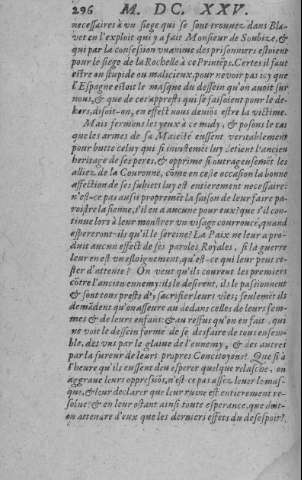 296 M. DC. XXV.
necessaires à vn siege qui se sont trouuez dans Bla-
uet en l'exploit qui y a fait Monsieur de Soubize, &
qui par la confession vnanime des prisonniers estoient
pour le siege de la Rochelle à ce Printẽps. Certes il faut
estre ou stupide ou malicieux, pour ne voir pas icy que
l'Espagne estoit le masque du dessein qu'on auoit sur
nous, & que de ces apprests qui se faisoient pour le de-
hors, disoit-on, en effect nous deuiõs estre la victime.
Mais fermons les yeux à ce midy, & posons le cas
que les armes de sa Maiesté eussent veritablement
pour butte celuy qui si iniustemẽt luy detient l'ancien
heritage de ses peres, & opprime si outrageusemẽt les
alliez de la Couronne, cõme en ceste occasion la bonne
affection de ses subiets luy est entierement necessaire:
n'est-ce pas aussi proprement la saison de leur faire pa-
roistre la sienne, s'il en a aucune pour eux? que s'il con-
tinue lors à leur monstrer vn visage courroucé, quand
espereront-ils qu'il se seréne? La Paix ne leur a pro-
duit aucun effect de ses paroles Royales, si la guerre
leur en est vn esloignement, qu'est-ce qui leur peut re-
ster d'attente? On veut qu'ils courent les premiers
cõtre l'ancien ennemy: ils le desirent, ils le passionnent
& sont tous prests d'y sacrifier leurs vies; seulemẽt ils
demãdent qu'on asseure au dedans celles de leurs fem-
mes & de leurs enfans: & au refus qu'on en fait, qui
ne voit le dessein formé de se desfaire de tout ensem-
ble, des vns par le glaiue de l'ennemy, & des autres
par la fureur de leurs propres Concitoyens? Que si à
l'heure qu'ils eussent deu esperer quelque relasche, on
aggraue leurs oppressiõs, n'est ce pas assez leuer le mas-
que, & leur declarer que leur ruine est entierement re-
solue? & en leur ostant ainsi toute esperance, que doit-
on attendre d'eux que les derniers effets du desespoir?